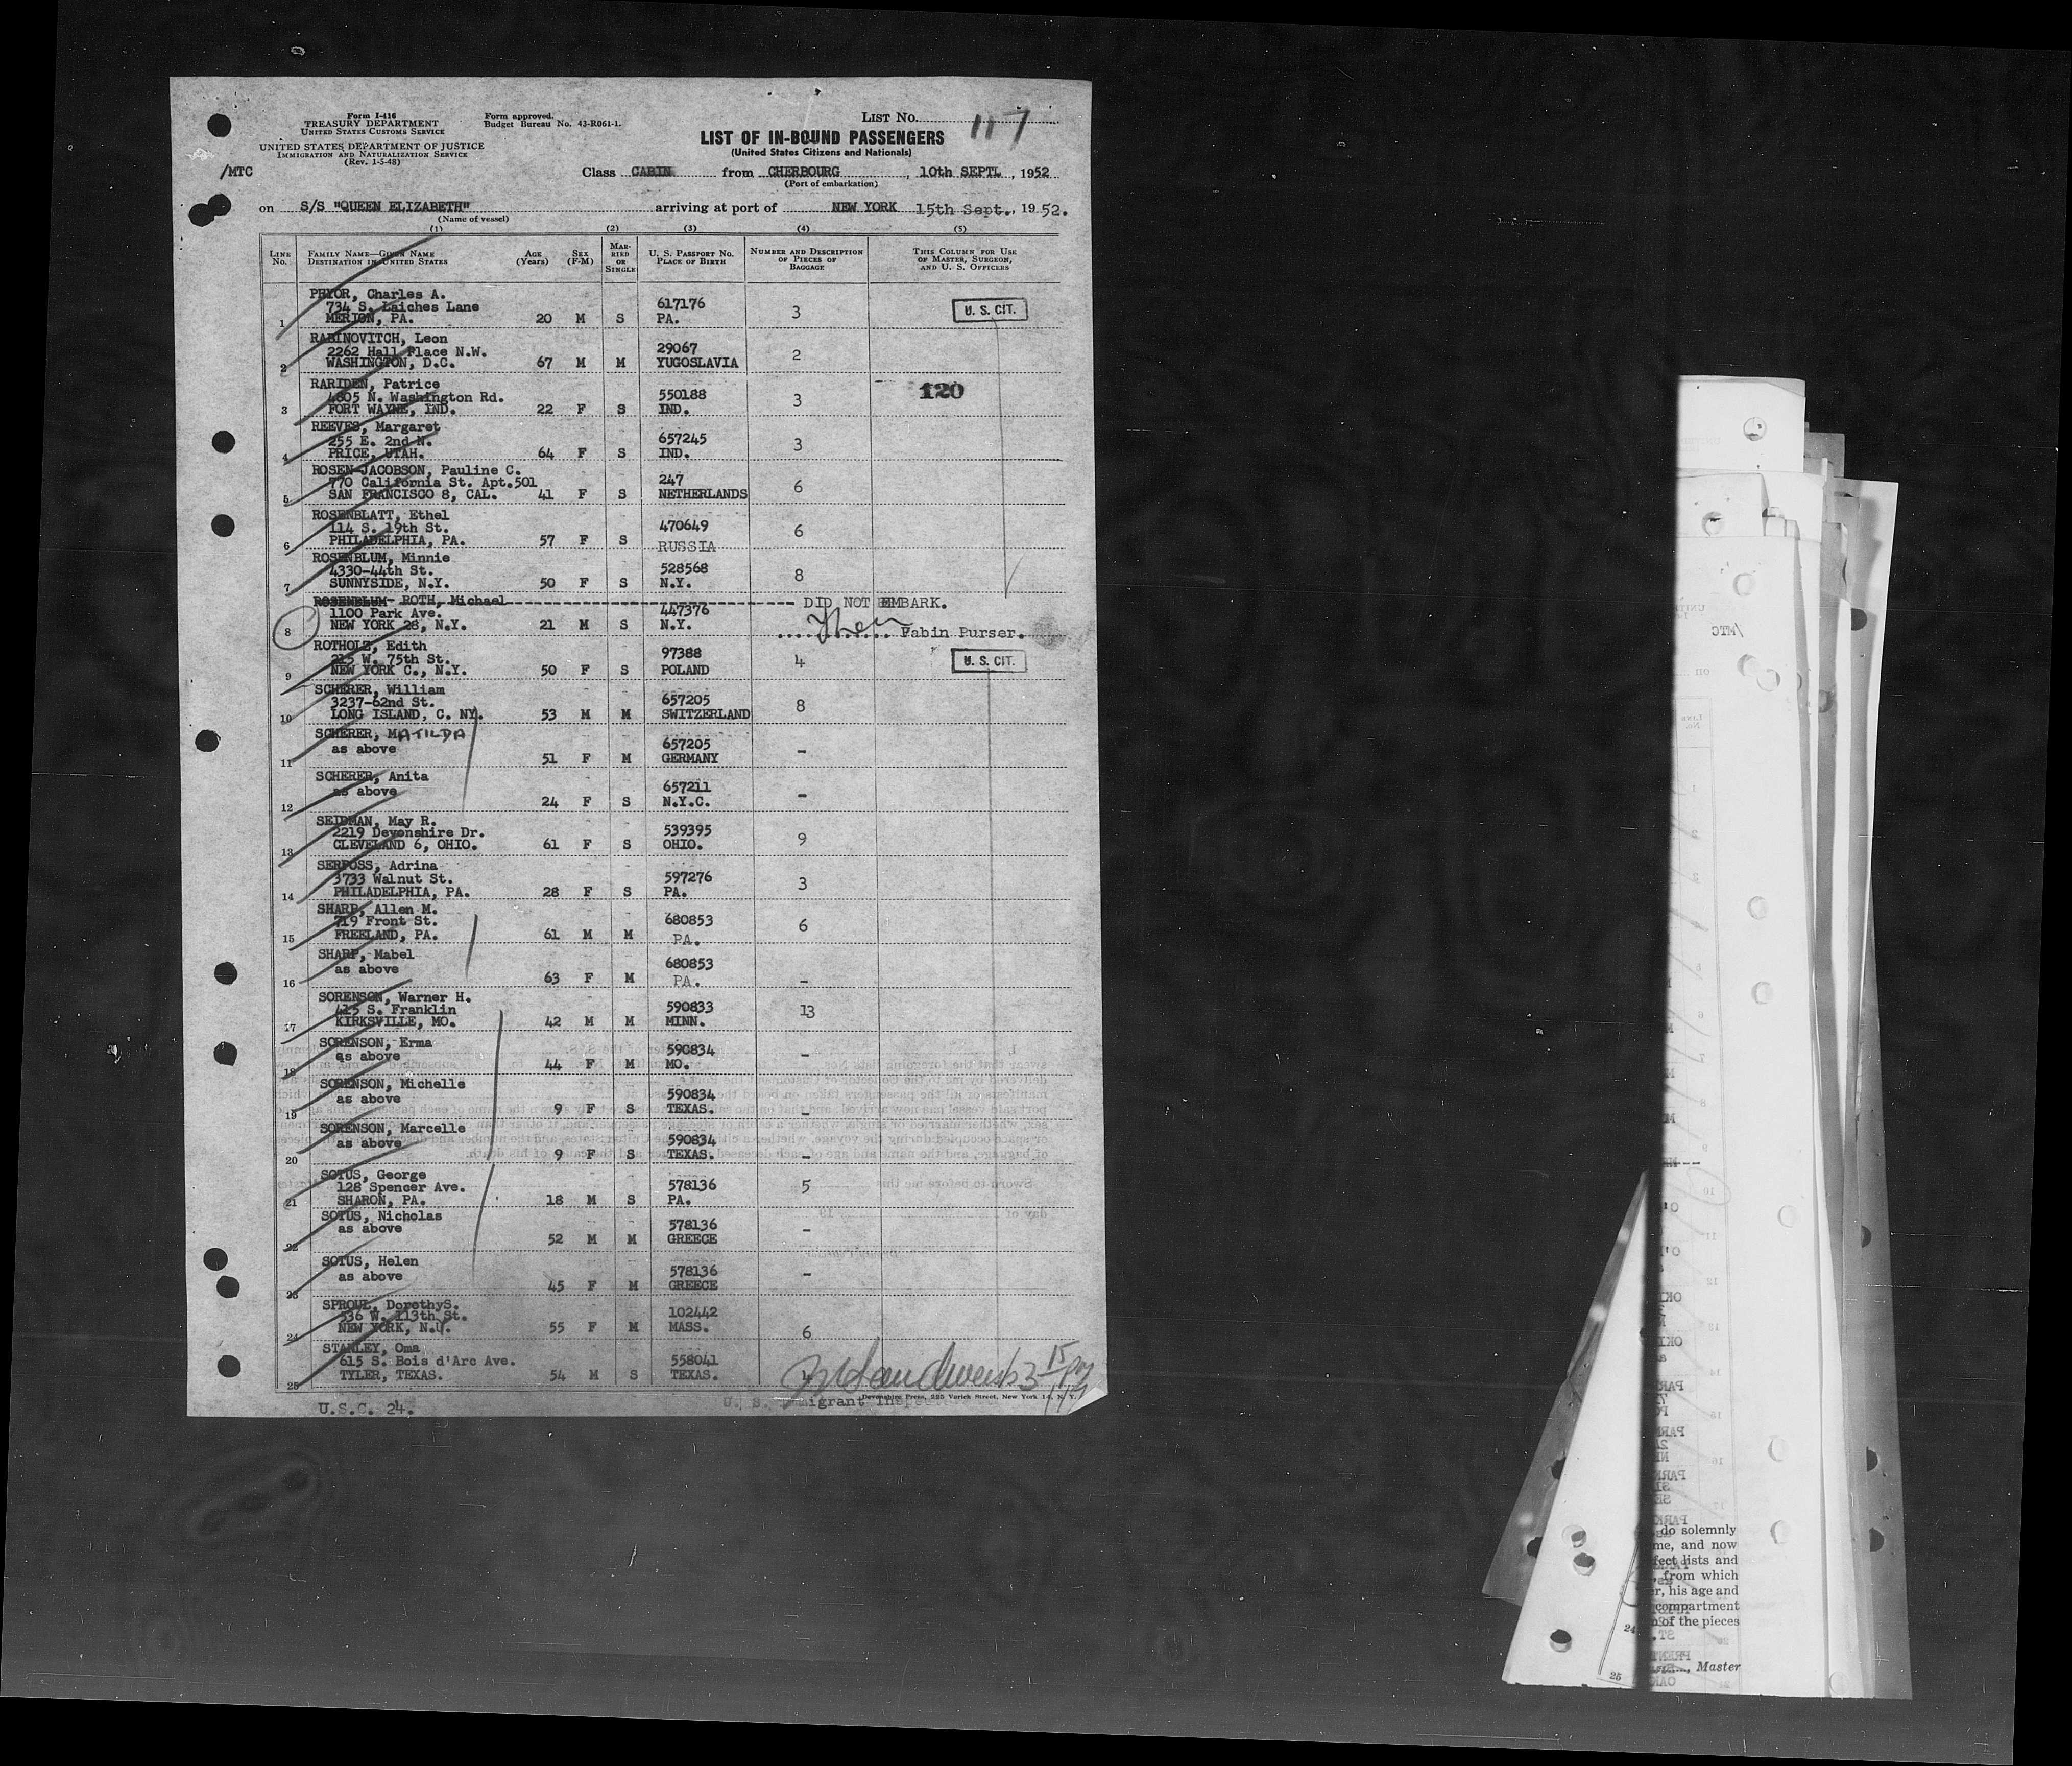 Form I-416
TREASURY DEPARTMENT
UNITED STATES CUSTOMS SERVICE
UNITED STATES DEPARTMENT OF JUSTICE
IMMIGRATION AND NATURALIZATION SERVICE
(Rev. 1-5-48)
/MTC
Form approved.
Budget Bureau No. 43-R061-1.
LIST NO. 117
LIST OF IN-BOUND PASSENGERS
(United States Citizens and Nationals)
Class CABIN from CHERBOURG, 10th SEPTL, 1952
(Port of embarkation)
on S/S "QUEEN ELIZABETH" arriving at port of NEW YORK 15th Sept., 1952.
(Name of vessel)
(1) (2) (3) (4) (5)
LINE No. FAMILY NAME—GIVEN NAME DESTINATION IN UNITED STATES AGE (Years) SEX (F-M) MARRIED OR SINGLE U. S. PASSPORT No. PLACE OF BIRTH NUMBER AND DESCRIPTION OF PIECES OF BAGGAGE THIS COLUMN FOR USE OF MASTER, SURGEON, AND U. S. OFFICERS
PRYOR, Charles A.
734 S. Laiches Lane 617176 3 U. S. CIT.
1 MERION, PA. 20 M S PA.
RABINOVITCH, Leon
2262 Hall Place N.W. 29067 2
2 WASHINGTON, D.C. 67 M M YUGOSLAVIA
RARIDEN, Patrice 120
4805 N. Washington Rd. 550188 3
3 FORT WAYNE, IND. 22 F S IND.
REEVES, Margaret
255 E. 2nd N. 657245 3
4 PRICE, UTAH. 64 F S IND.
ROSEN-JACOBSON, Pauline C.
770 California St. Apt.501 247 6
5 SAN FRANCISCO 8, CAL. 41 F S NETHERLANDS
ROSENBLATT, Ethel
114 S. 19th St. 470649 6
6 PHILADELPHIA, PA. 57 F S RUSSIA
ROSENBLUM, Minnie
4330-44th St. 528568 8
7 SUNNYSIDE, N.Y. 50 F S N.Y.
ROSENBLUM- ROTH, Michael DID NOT EMBARK.
1100 Park Ave. 447376
8 NEW YORK 28, N.Y. 21 M S N.Y. Fabin Purser.
ROTHOLZ, Edith
215 W. 75th St. 97388 4 U. S. CIT.
9 NEW YORK C., N.Y. 50 F S POLAND
SCHERER, William
3237-62nd St. 657205 8
10 LONG ISLAND, C. NY. 53 M M SWITZERLAND
SCHERER, MATILDA
as above 657205 -
11 51 F M GERMANY
SCHERER, Anita
as above 657211 -
12 24 F S N.Y.C.
SEIDMAN, May R.
2219 Devonshire Dr. 539395 9
13 CLEVELAND 6, OHIO. 61 F S OHIO.
SERPOSS, Adrina
3733 Walnut St. 597276 3
14 PHILADELPHIA, PA. 28 F S PA.
SHARP, Allen M.
719 Front St. 680853 6
15 FREELAND, PA. 61 M M PA.
SHARP, Mabel
as above 680853 -
16 63 F M PA.
SORENSON, Warner H.
415 S. Franklin 590833 13
17 KIRKSVILLE, MO. 42 M M MINN.
SORENSON, Erma
as above 590834 -
18 44 F M MO.
SORENSON, Michelle
as above 590834 -
19 9 F S TEXAS.
SORENSON, Marcelle
as above 590834 -
20 9 F S TEXAS.
SOTUS, George
128 Spencer Ave. 578136 5
21 SHARON, PA. 18 M S PA.
SOTUS, Nicholas
as above 578136 -
22 52 M M GREECE
SOTUS, Helen
as above 578136 -
23 45 F M GREECE
SPROUL, DorothyS.
536 W. 113th St. 102442
24 NEW YORK, N.Y. 55 F M MASS. 6
STANLEY, Oma
615 S. Bois d'Arc Ave. 558041
25 TYLER, TEXAS. 54 M S TEXAS.
Devonshire Press, 225 Varick Street, New York 14, N. Y.
U.S.C. 24. U. S. Immigrant Inspector
do solemnly
me, and now
fect lists and
, from which
r, his age and
compartment
n of the pieces
24
25
, Master